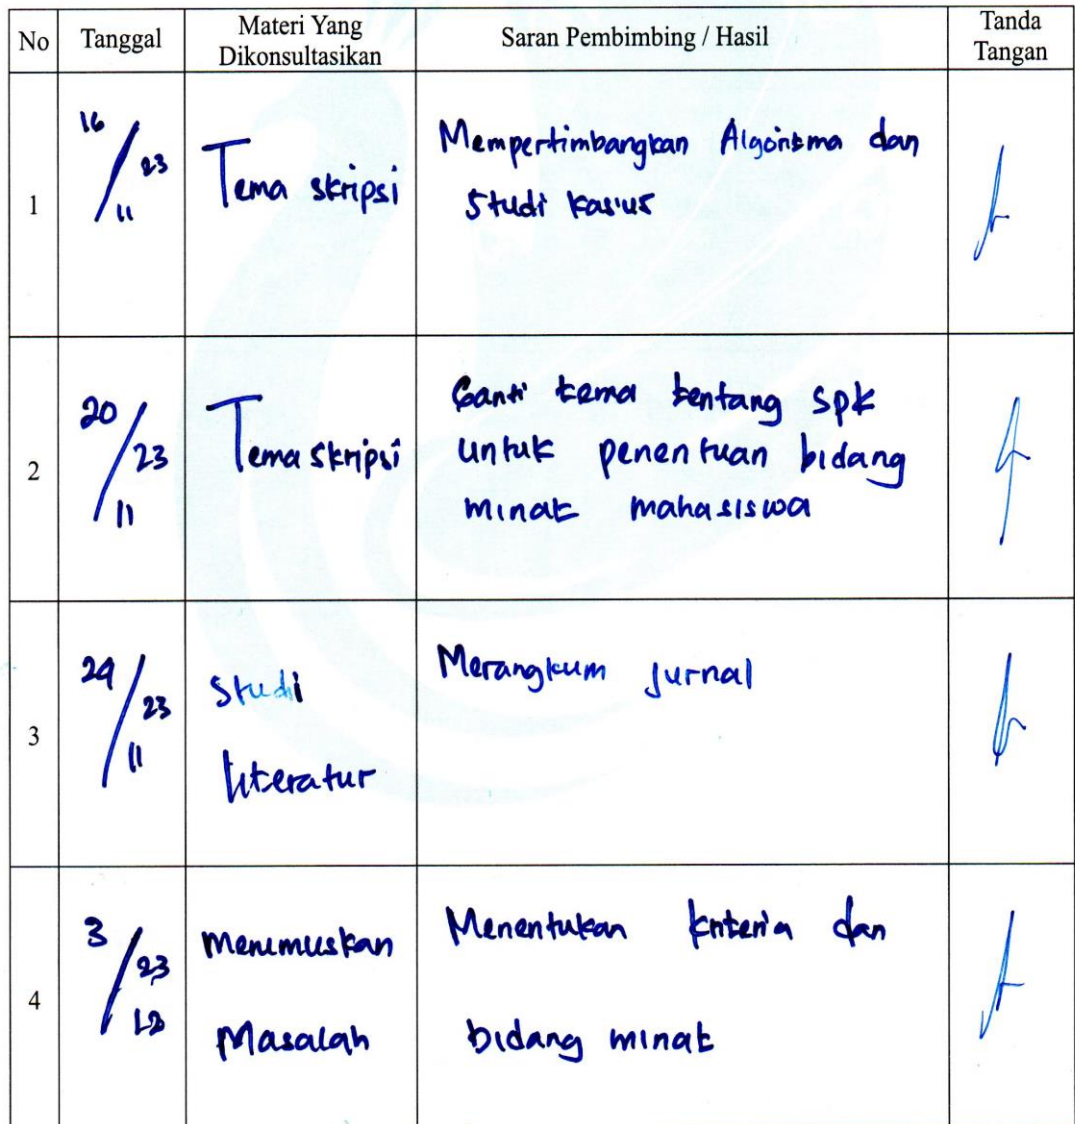 No Tanggal Materi Yang Dikonsultasikan Saran Pembimbing / Hasil Tanda Tangan
1
16/11 23
Tema skripsi
Mempertimbangkan Algoritma dan
Studi kasus
2
20/11 23
Tema skripsi
Ganti tema tentang SPK
untuk penentuan bidang
minat mahasiswa
3
24/11 23
Studi
literatur
Merangkum jurnal
4
3/12 23
Merumuskan
Masalah
Menentukan kriteria dan
bidang minat